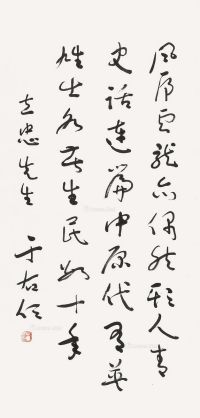 風虎雲龍亦偶然欺人青
史話連篇中原代有英
雄出各苦生民數十年
忠先生 于右任